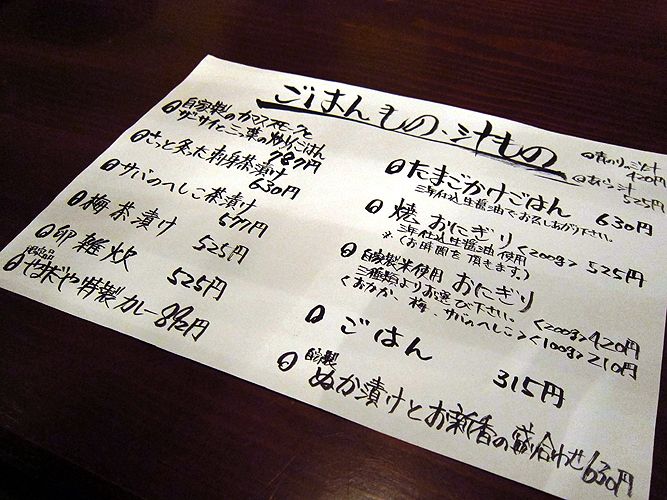 ごはんもの、汁もの
自家製のカマススモークと
ザーサイと三つ葉の炒めごはん
787円
さっと炙った刺身茶漬け
630円
サバのへしこ茶漬け
577円
梅茶漬け
525円
卵雑炊
525円
特製カレー 892円
汁
420円
汁
525円
たまごかけごはん 630円
三年仕込生醤油でお召しあがり下さい。
焼おにぎり <200g> 525円
三年仕込生醤油使用
※(お時間を頂きます。)
自家製米使用 おにぎり
三種類よりお選び下さい。 <200g> 420円
<おかか、梅、サバのへしこ> <100g> 210円
ごはん 315円
自家製
ぬか漬けとお新香の盛り合わせ 630円